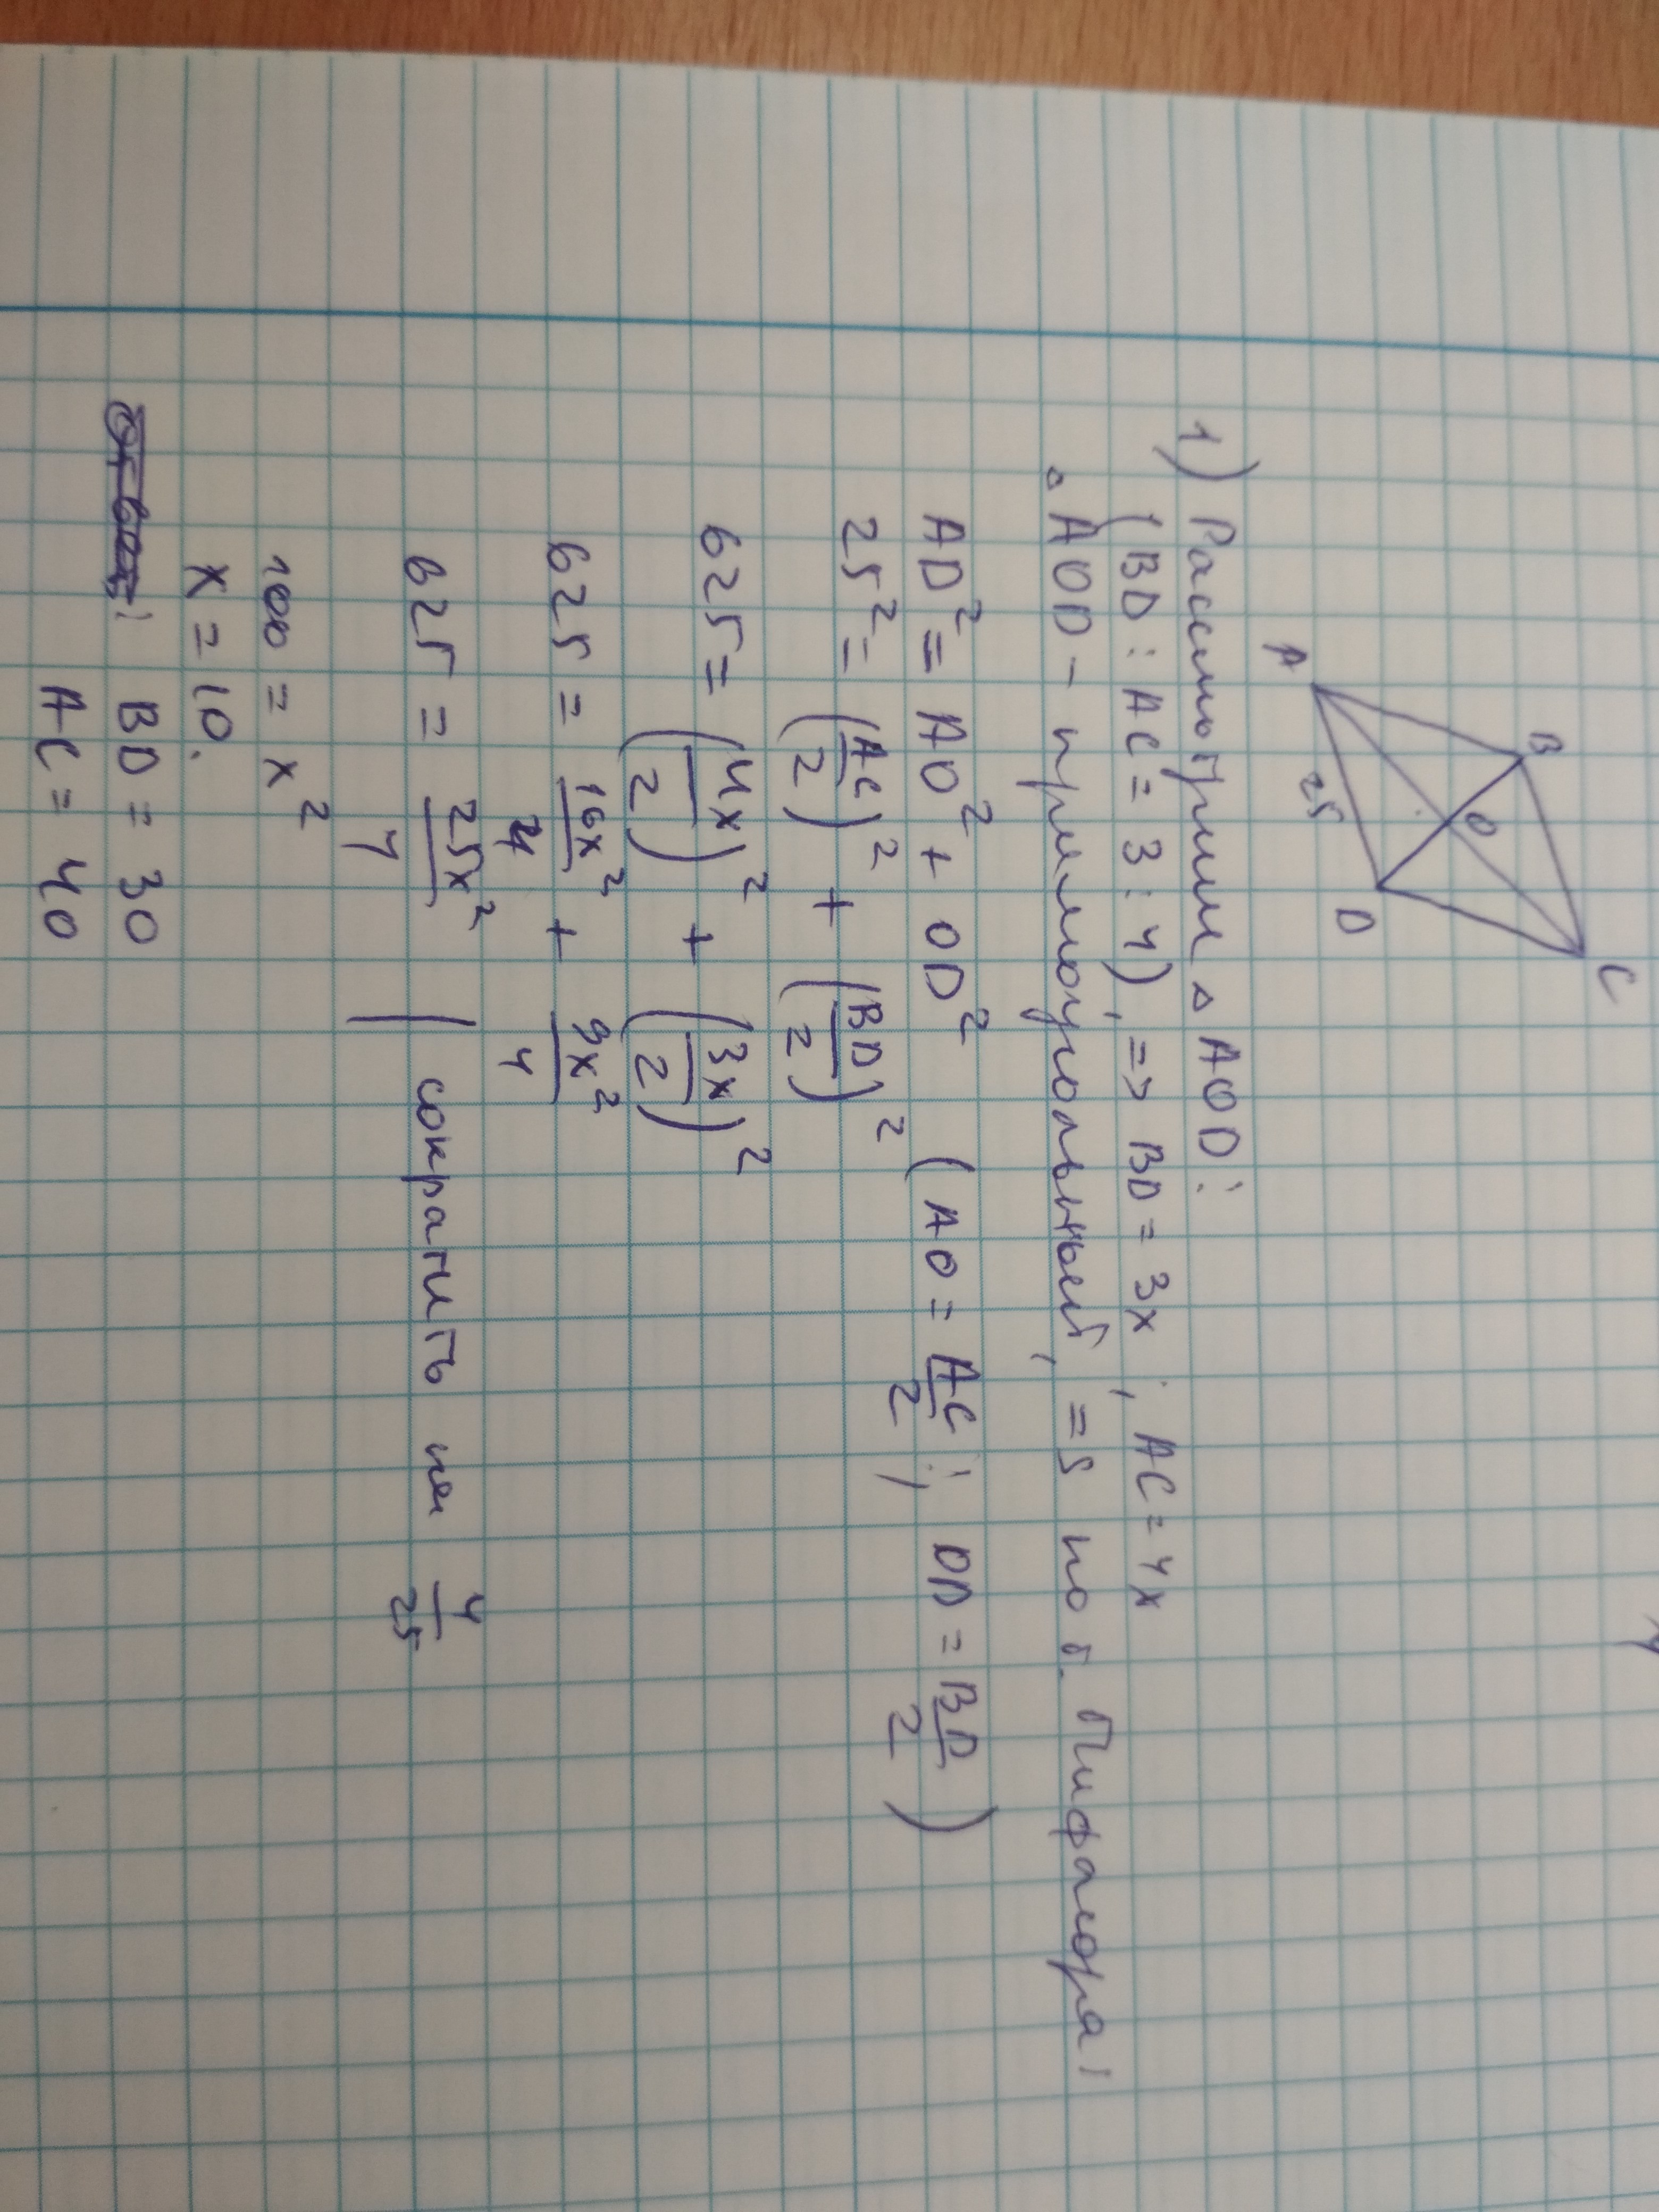 B
C
O
A
25
D
1) Рассмотрим △ AOD:
(BD : AC = 3 : 4), => BD = 3x ; AC = 4x
△ AOD - прямоугольный, => по т. Пифагора:
AD² = AO² + OD² (AO = AC/2 ; OD = BD/2)
25² = (AC/2)² + (BD/2)²
625 = (4x/2)² + (3x/2)²
625 = 16x²/4 + 9x²/4
625 = 25x²/4 | сократить на 4/25
100 = x²
x = 10.
BD = 30
AC = 40